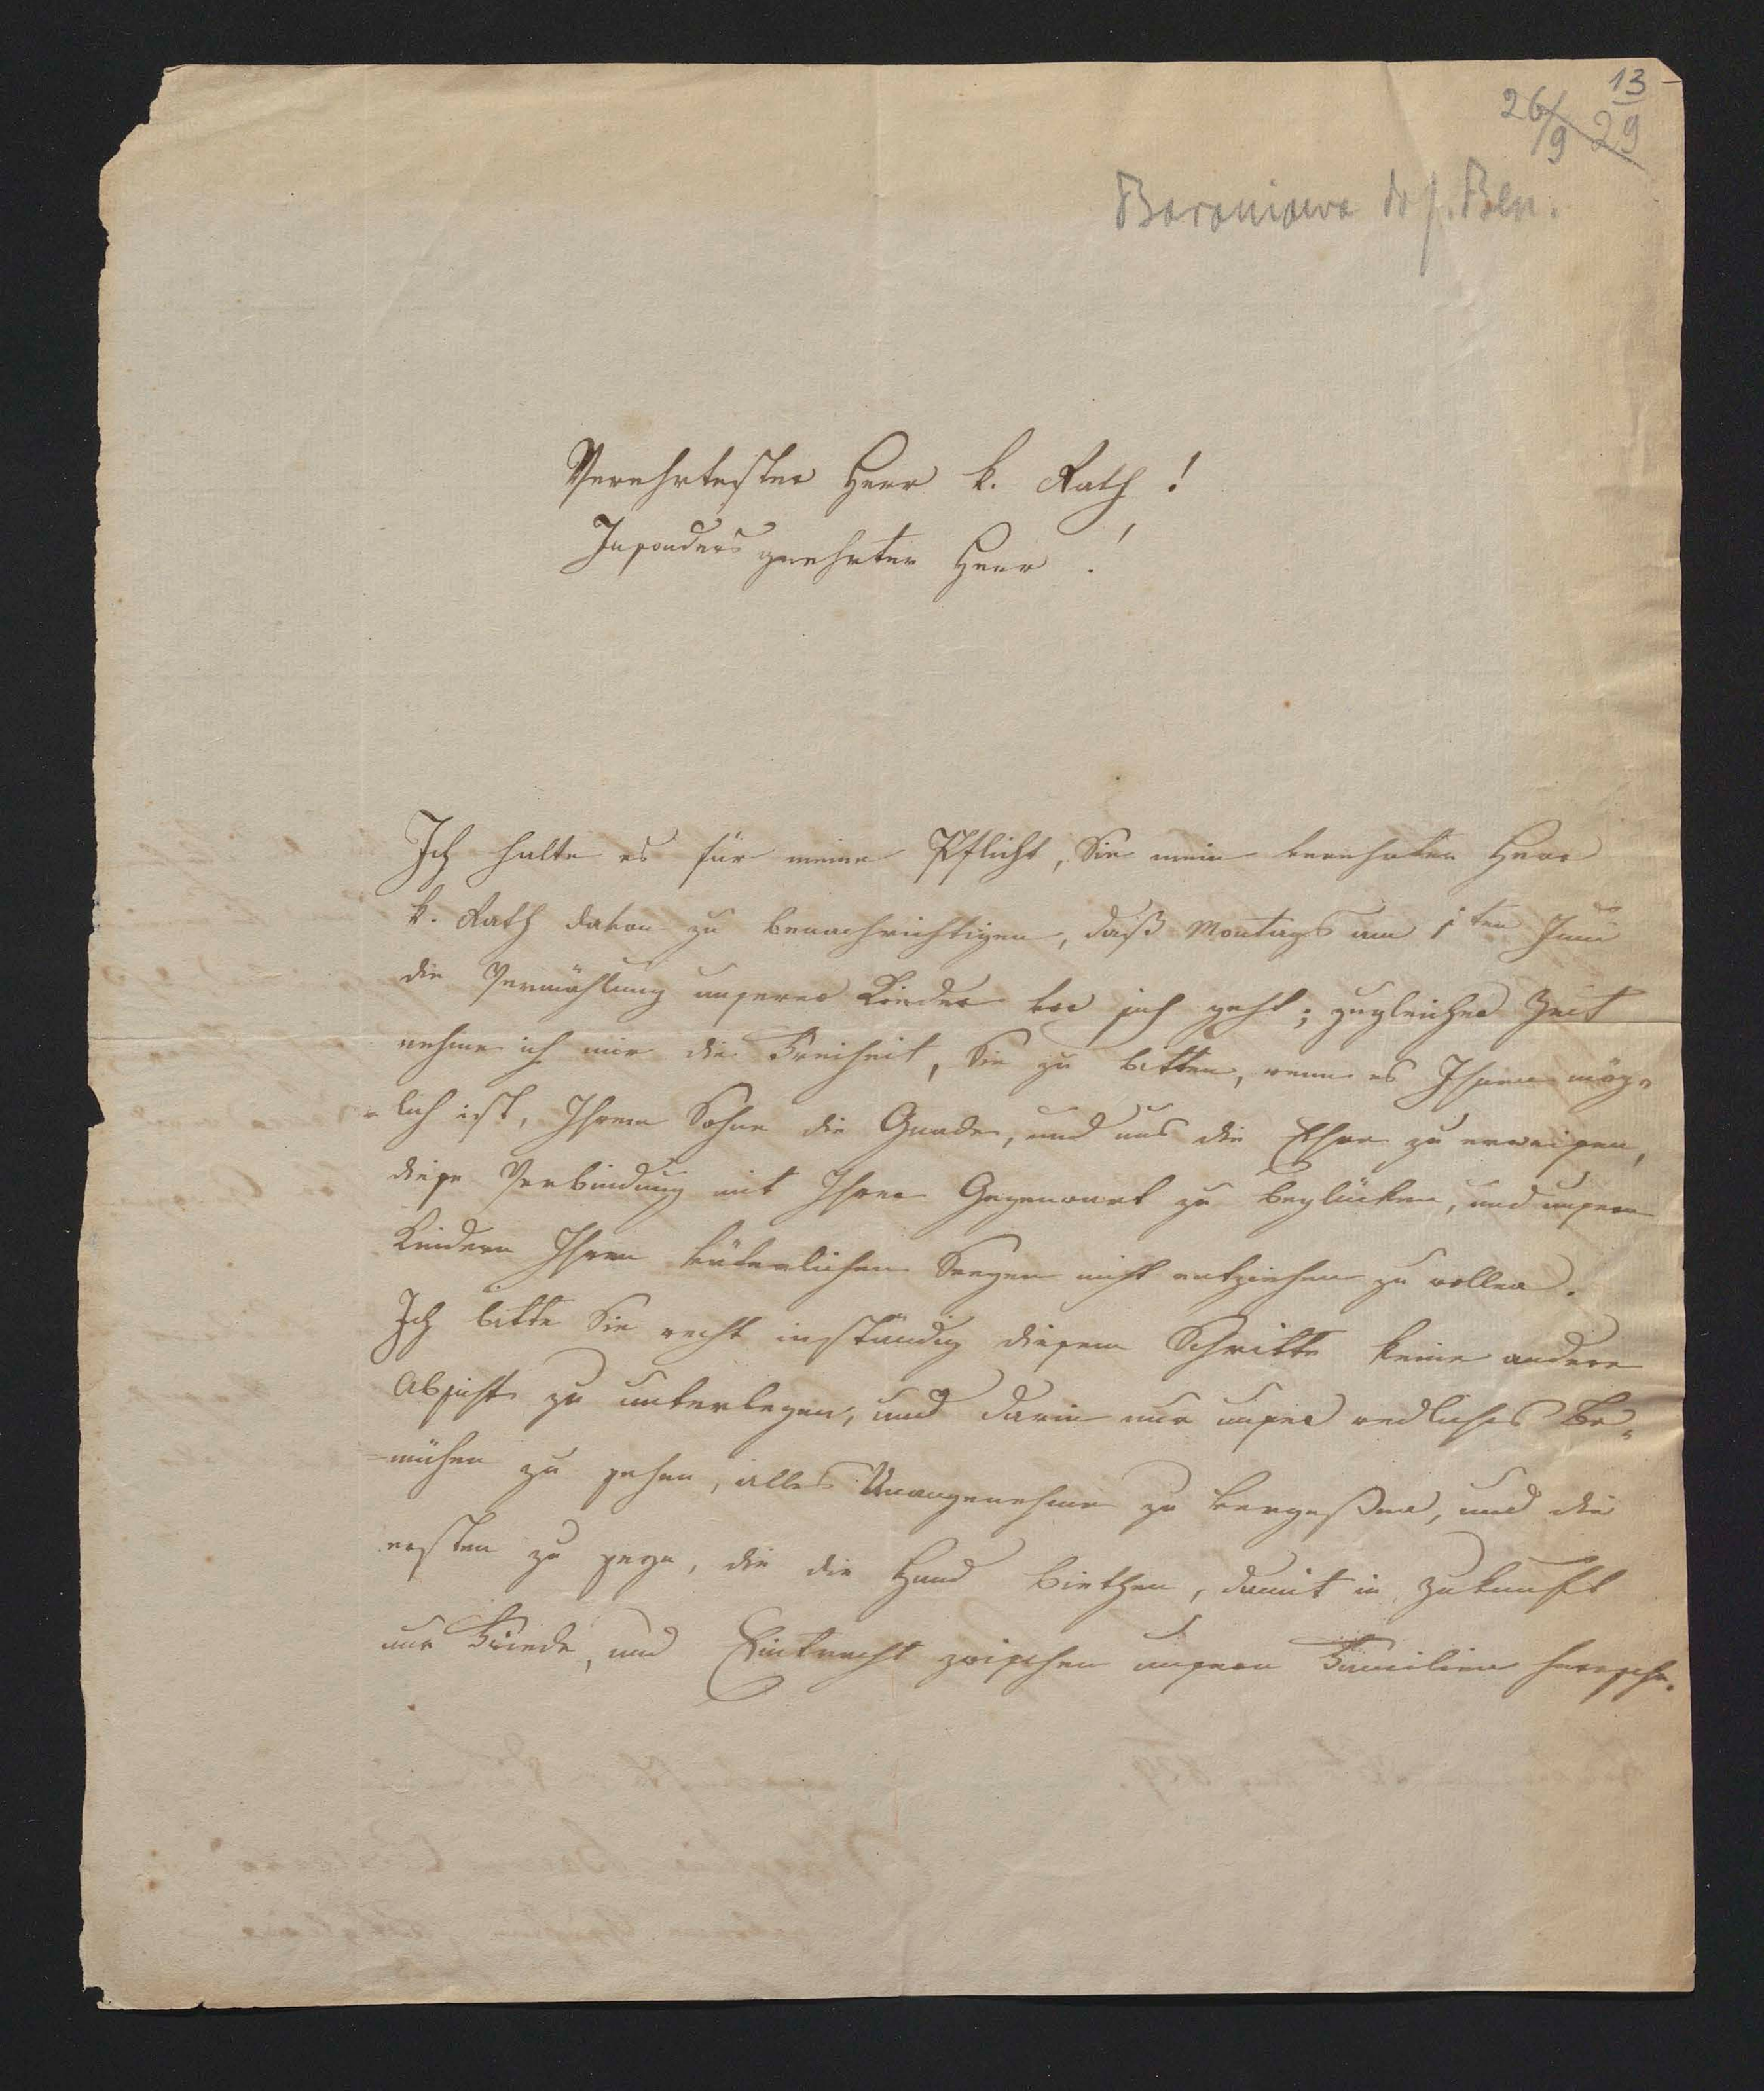 13
26/9 29
Baroniowa do J. Ben.
Verehrtester Herr k. Rath!
Insonders geehrter Herr!
Ich halte es für meine Pflicht, Sie mein verehrter Herr
k. Rath davon zu benachrichtigen, daß Montags am 1ten Juni
die Vermählung unserer Kinder vor sich geht; zugleicher Zeit
nehme ich mir die Freiheit, Sie zu bitten, wenn es Ihnen mög=
=lich ist, Ihrem Sohne die Gnade, und uns die Ehre zu erweisen,
diese Verbindung mit Ihrer Gegenwart zu beglücken, und unsern
Kindern Ihren väterlichen Seegen nicht entziehen zu wollen.
Ich bitte Sie recht inständig diesem Schritte keine andere
Absicht zu unterlegen, und darin nur unser redliches Be=
=mühen zu sehen, alles Unangenehme zu vergeßen, und die
ersten zu seyn, die die Hand biethen, damit in Zukunft
nur Friede, und Eintracht zwischen unsern Familien herrsche.